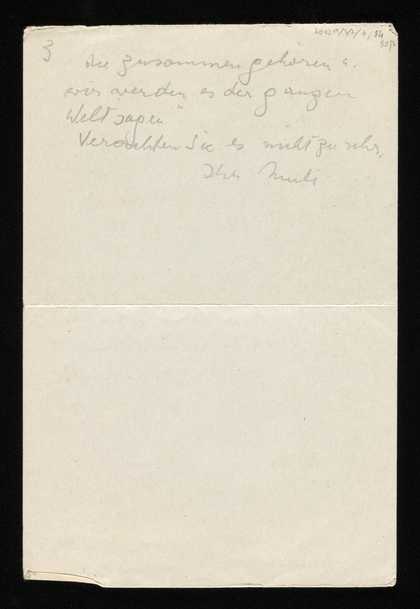 3
die zusammen gehören u.
wir werden es der ganzen
Welt sagen"
Verachten Sie es nicht zu sehr.
Ihr